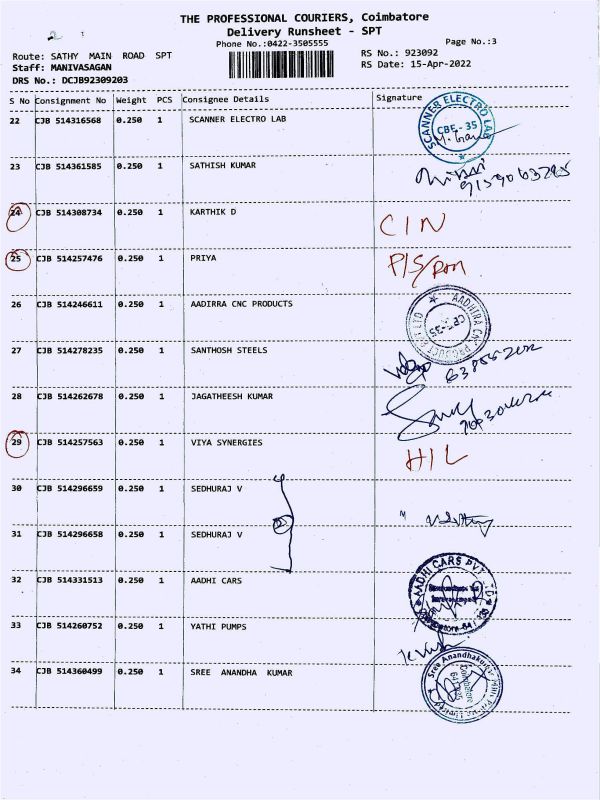 2
THE PROFESSIONAL COURIERS, Coimbatore
Delivery Runsheet - SPT
Phone No.:0422-3505555
Page No.:3
Route: SATHY MAIN ROAD SPT
RS No.: 923092
Staff: MANIVASAGAN
RS Date: 15-Apr-2022
DRS No.: DCJB92309203
S No Consignment No Weight PCS Consignee Details Signature
22 CJB 514316568 0.250 1 SCANNER ELECTRO LAB
SCANNER ELECTRO LAB
CBE - 35
23 CJB 514361585 0.250 1 SATHISH KUMAR
24 CJB 514308734 0.250 1 KARTHIK D
CIN
25 CJB 514257476 0.250 1 PRIYA
P/S/
26 CJB 514246611 0.250 1 AADIRRA CNC PRODUCTS
27 CJB 514278235 0.250 1 SANTHOSH STEELS
28 CJB 514262678 0.250 1 JAGATHEESH KUMAR
29 CJB 514257563 0.250 1 VIYA SYNERGIES
HIL
30 CJB 514296659 0.250 1 SEDHURAJ V
2
31 CJB 514296658 0.250 1 SEDHURAJ V
32 CJB 514331513 0.250 1 AADHI CARS
AADHI CARS PVT LTD
33 CJB 514260752 0.250 1 YATHI PUMPS
34 CJB 514360499 0.250 1 SREE ANANDHA KUMAR